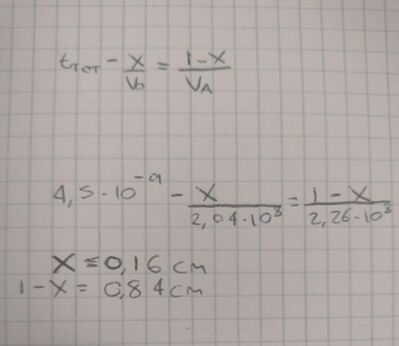 t_TOT - X/V_O = 1-X/V_A
4,5·10^-9 - X/2,04·10^8 = 1-X/2,26·10^8
X = 0,16 cm
1-X = 0,84 cm